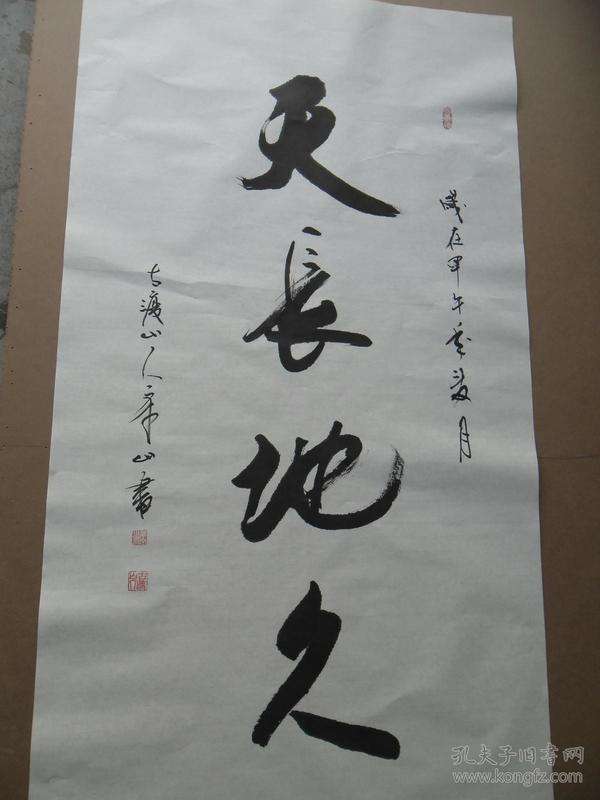 歲在甲午季夏月
天長地久
古渡山人山書
孔夫子旧书网
www.kongfz.com